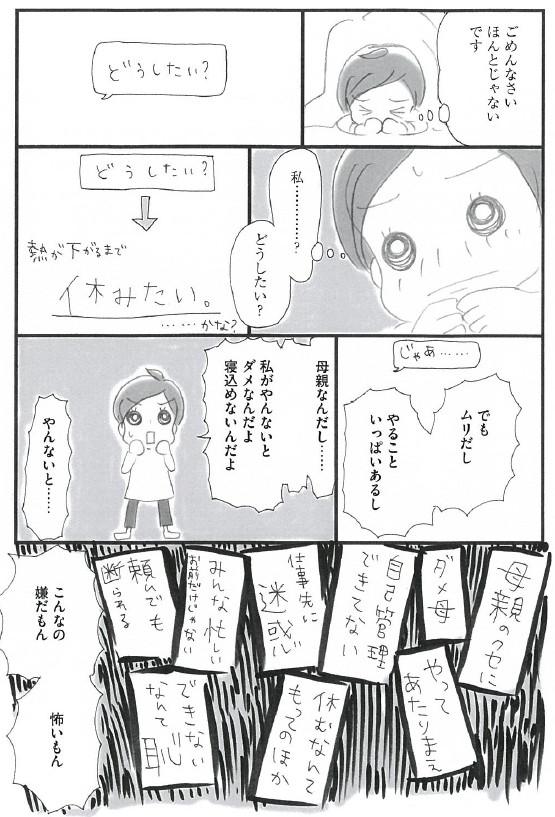 ごめんなさい
ほんとじゃない
です
どうしたい?
私…………?
どうしたい?
どうしたい?
熱が下がるまで
休みたい。
……かな?
じゃあ……
でも
ムリだし
やること
いっぱいあるし
母親なんだし……
私がやんないと
ダメなんだよ
寝込めないんだよ
やんないと……
母親のクセに
ダメ母
やって
あたりまえ
自己管理
できてない
仕事先に
迷惑
休むなんて
もってのほか
みんな忙しい
お前だけじゃない
できない
なんて恥
頼んでも
断られる
こんなの
嫌だもん
怖いもん